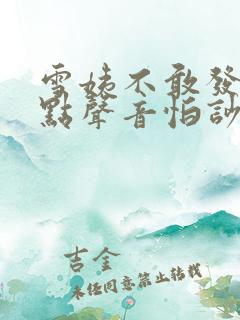 雪姨不敢發
點聲音怕訬
吉金
未经同意禁止转载